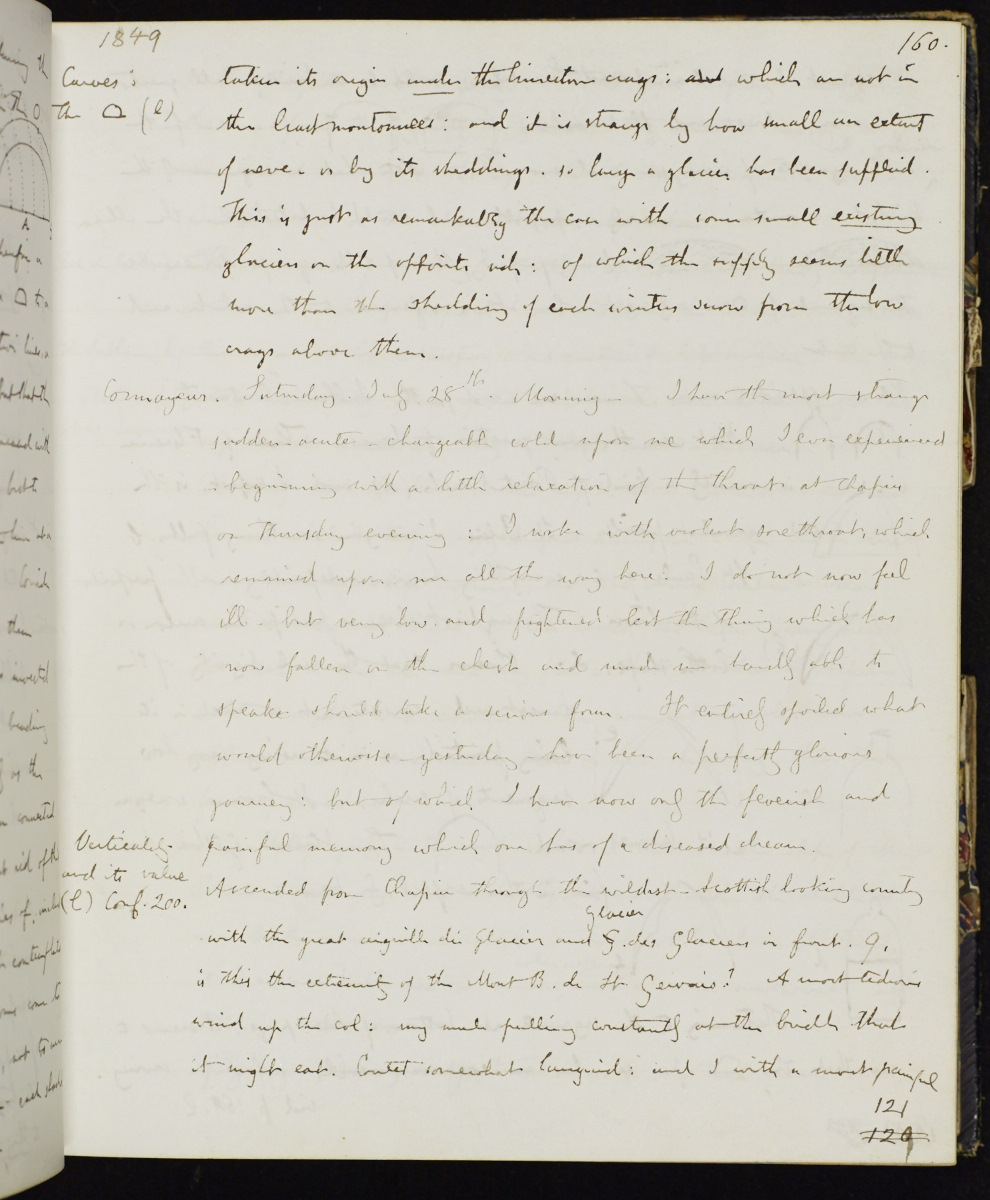 1849
160.
Curves:
the ⌓ (l)
taken its origin under the limestone crags: and which are not in
the least montonnees: and it is strange by how small an extent
of neve. or by its sheddings. so large a glacier has been supplied.
This is just as remarkably the case with some small existing
glaciers on the opposite side: of which the supply seems little
more than the shedding of each winters snow from the low
crags above them.
Cormayeur. Saturday. July 28th. Morning. I have the most strange
sudden - acute - changeable cold upon me which I ever experienced
- beginning with a little relaxation of the throat at Chapiu
on Thursday evening: I woke with violent sore throat, which
remained upon me all the way here: I do not now feel
ill - but very low. and frightened lest the thing which has
now fallen on the chest and made me hardly able to
speak should take a serious form. It entirely spoiled what
would otherwise - yesterday - have been a perfectly glorious
journey: but of which I have now only the feverish and
painful memory which one has of a diseased dream.
Verticality.
and its value
(l) Conf. 200.
Ascended from Chapiu through the wildest - Scottish looking country
glacier
with the great aiguille du Glacier and G. des Glaciers in front. Q.
is this the extremity of the Mont B. de St Gervais? A most tedious
wind up the col: my mule pulling constantly at the bridle that
it might eat. Coutet somewhat languid: and I with a most painful
121
129